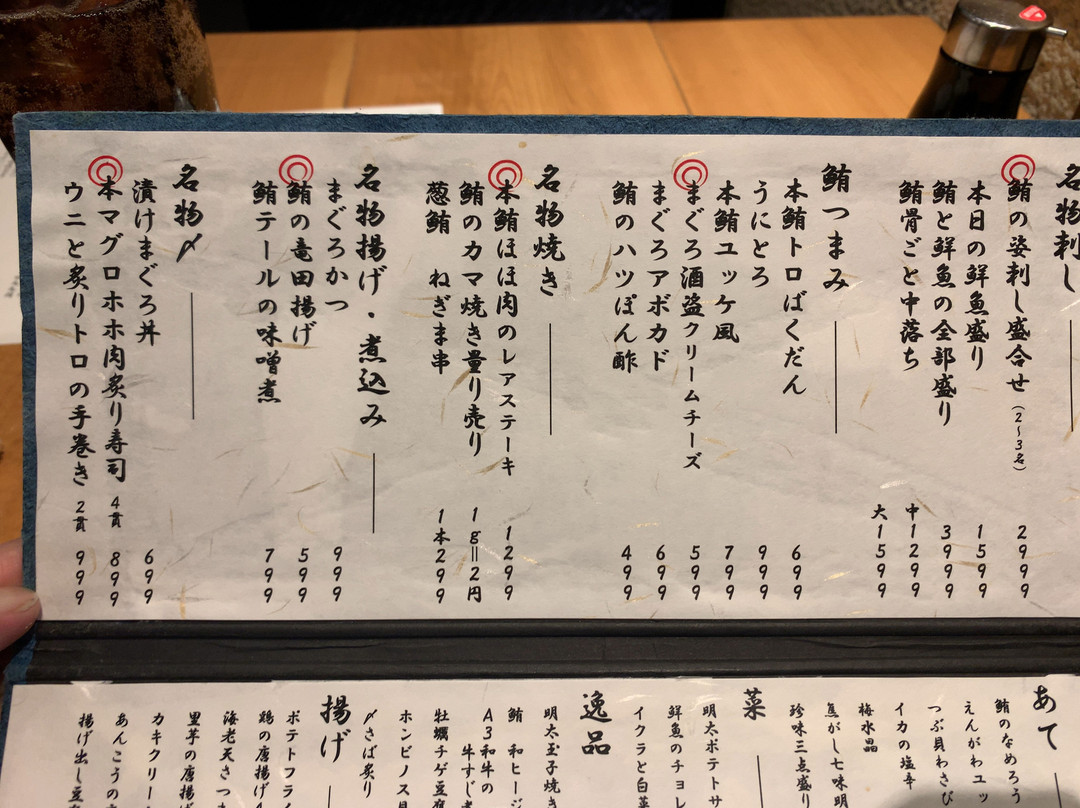 名物刺し
鮪の姿刺し盛合せ(2~3名) 2999
本日の鮮魚盛り 1599
鮪と鮮魚の全部盛り 3999
鮪骨ごと中落ち 中1299
大1599
鮪つまみ
本鮪トロばくだん 699
うにとろ 999
本鮪ユッケ風 799
まぐろ酒盗クリームチーズ 599
まぐろアボカド 699
鮪のハツぽん酢 499
名物焼き
本鮪ほほ肉のレアステーキ 1299
鮪のカマ焼き量り売り 1g=2円
葱鮪 ねぎま串 1本299
名物揚げ・煮込み
まぐろかつ 999
鮪の竜田揚げ 599
鮪テールの味噌煮 799
名物〆
漬けまぐろ丼 699
本マグロホホ肉炙り寿司 4貫 899
ウニと炙りトロの手巻き 2貫 999
あて
鮪のなめろう
えんがわユッ
つぶ貝わさび
イカの塩辛
梅水晶
焦がし七味明
珍味三点盛り
菜
明太ポテトサ
鮮魚のチョレ
イクラと白菜
逸品
明太玉子焼き
鮪 和ヒージ
A3和牛の
牛すじ煮
牡蠣チゲ豆腐
ホンビノス貝
〆さば炙り
揚げ
ポテトフライ
鶏の唐揚げ
海老天さつま
里芋の唐揚げ
カキクリー
あんこうの
揚げ出し豆